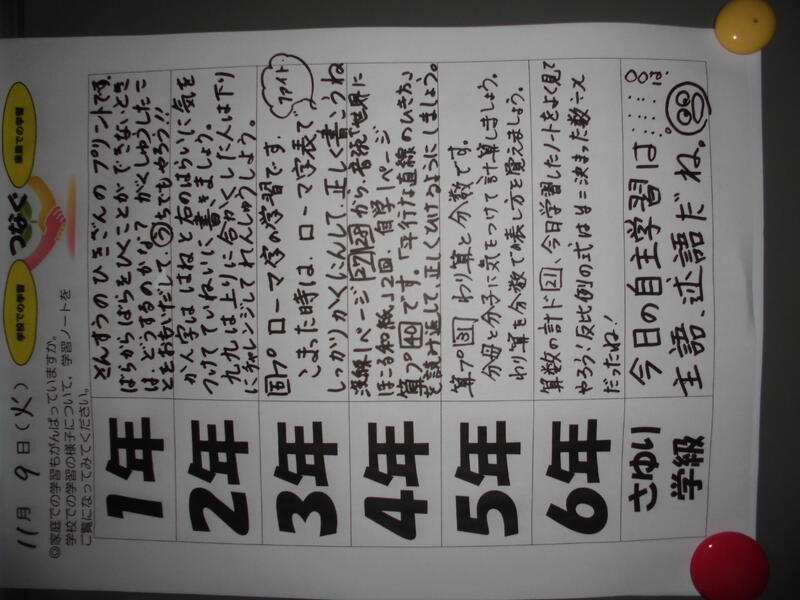 学校での学習
つなぐ
家庭での学習
11月 9日(火)
◎家庭での学習もがんばっていますか。
学校での学習の様子について、学習ノートを
ご覧になってみてください。
1年
さんすうのひきざんのプリントです。
ばらからばらをひくことができないとき
は、どうするのかな? がくしゅうしたこ
とをおもいだして、おうちでもやろう!!
2年
かん字は はねと右のはらいに気を
つけて ていねいに書きましょう。
九九は上りに合かくした人は下り
にチャレンジしてれんしゅうしよう。
3年
国プ ローマ字の学習です。
こまった時は、ローマ字表で
しっかりかくにんして、正しく書こうね
ファイト
4年
漢練1ページ 27 28 から、音読「世界に
ほこる和紙」2回、自学1ページ
算プ 40 です。「平行な直線のひき方」
を読み返して、正しくひけるようにしましょう。
5年
算プ 31 わり算と分数です。
分母と分子に気をつけて計算しましょう。
わり算を分数での表し方を覚えましょう。
6年
算数の計ド 21、今日学習したノートをよく見て
やろう!反比例の式はy=決まった数÷x
だったね!
さゆり
学級
今日の自主学習は
主語、述語だね。
は、